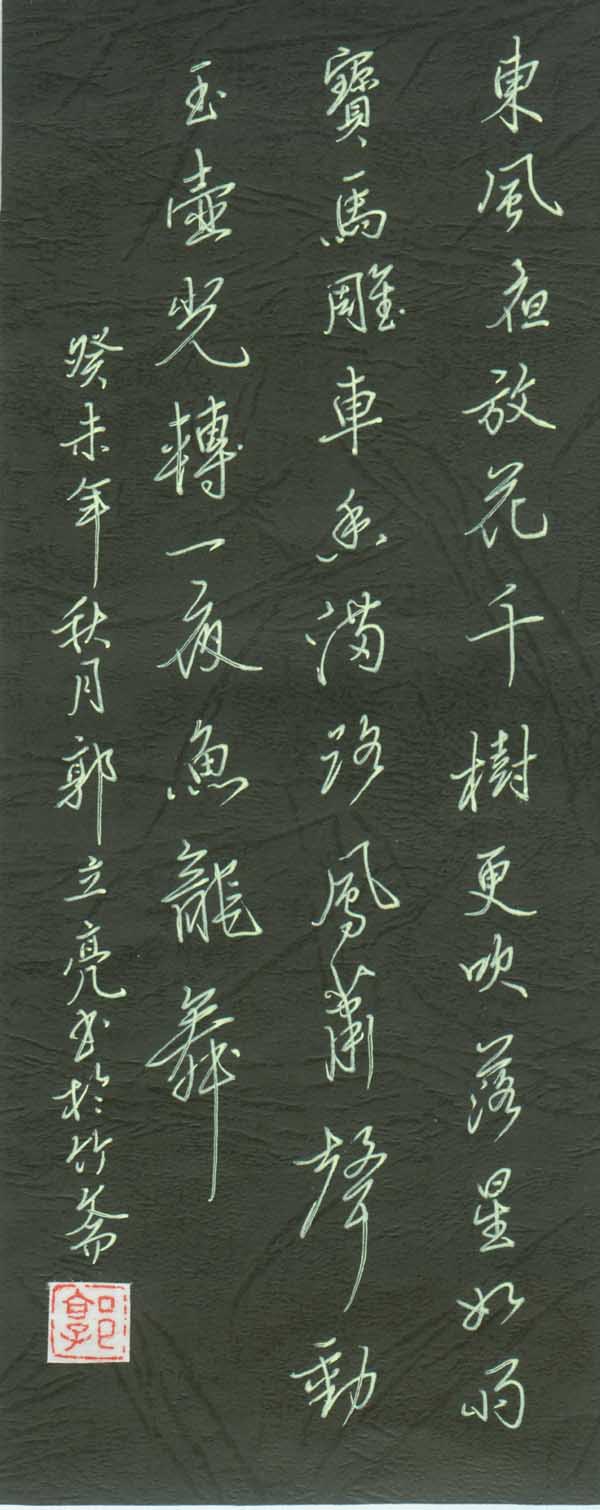 東風夜放花千樹更吹落星如雨
寶馬雕車香滿路鳳蕭聲動
玉壺光轉一夜魚龍舞
癸未年秋月郭立亮书於竹斋
郭